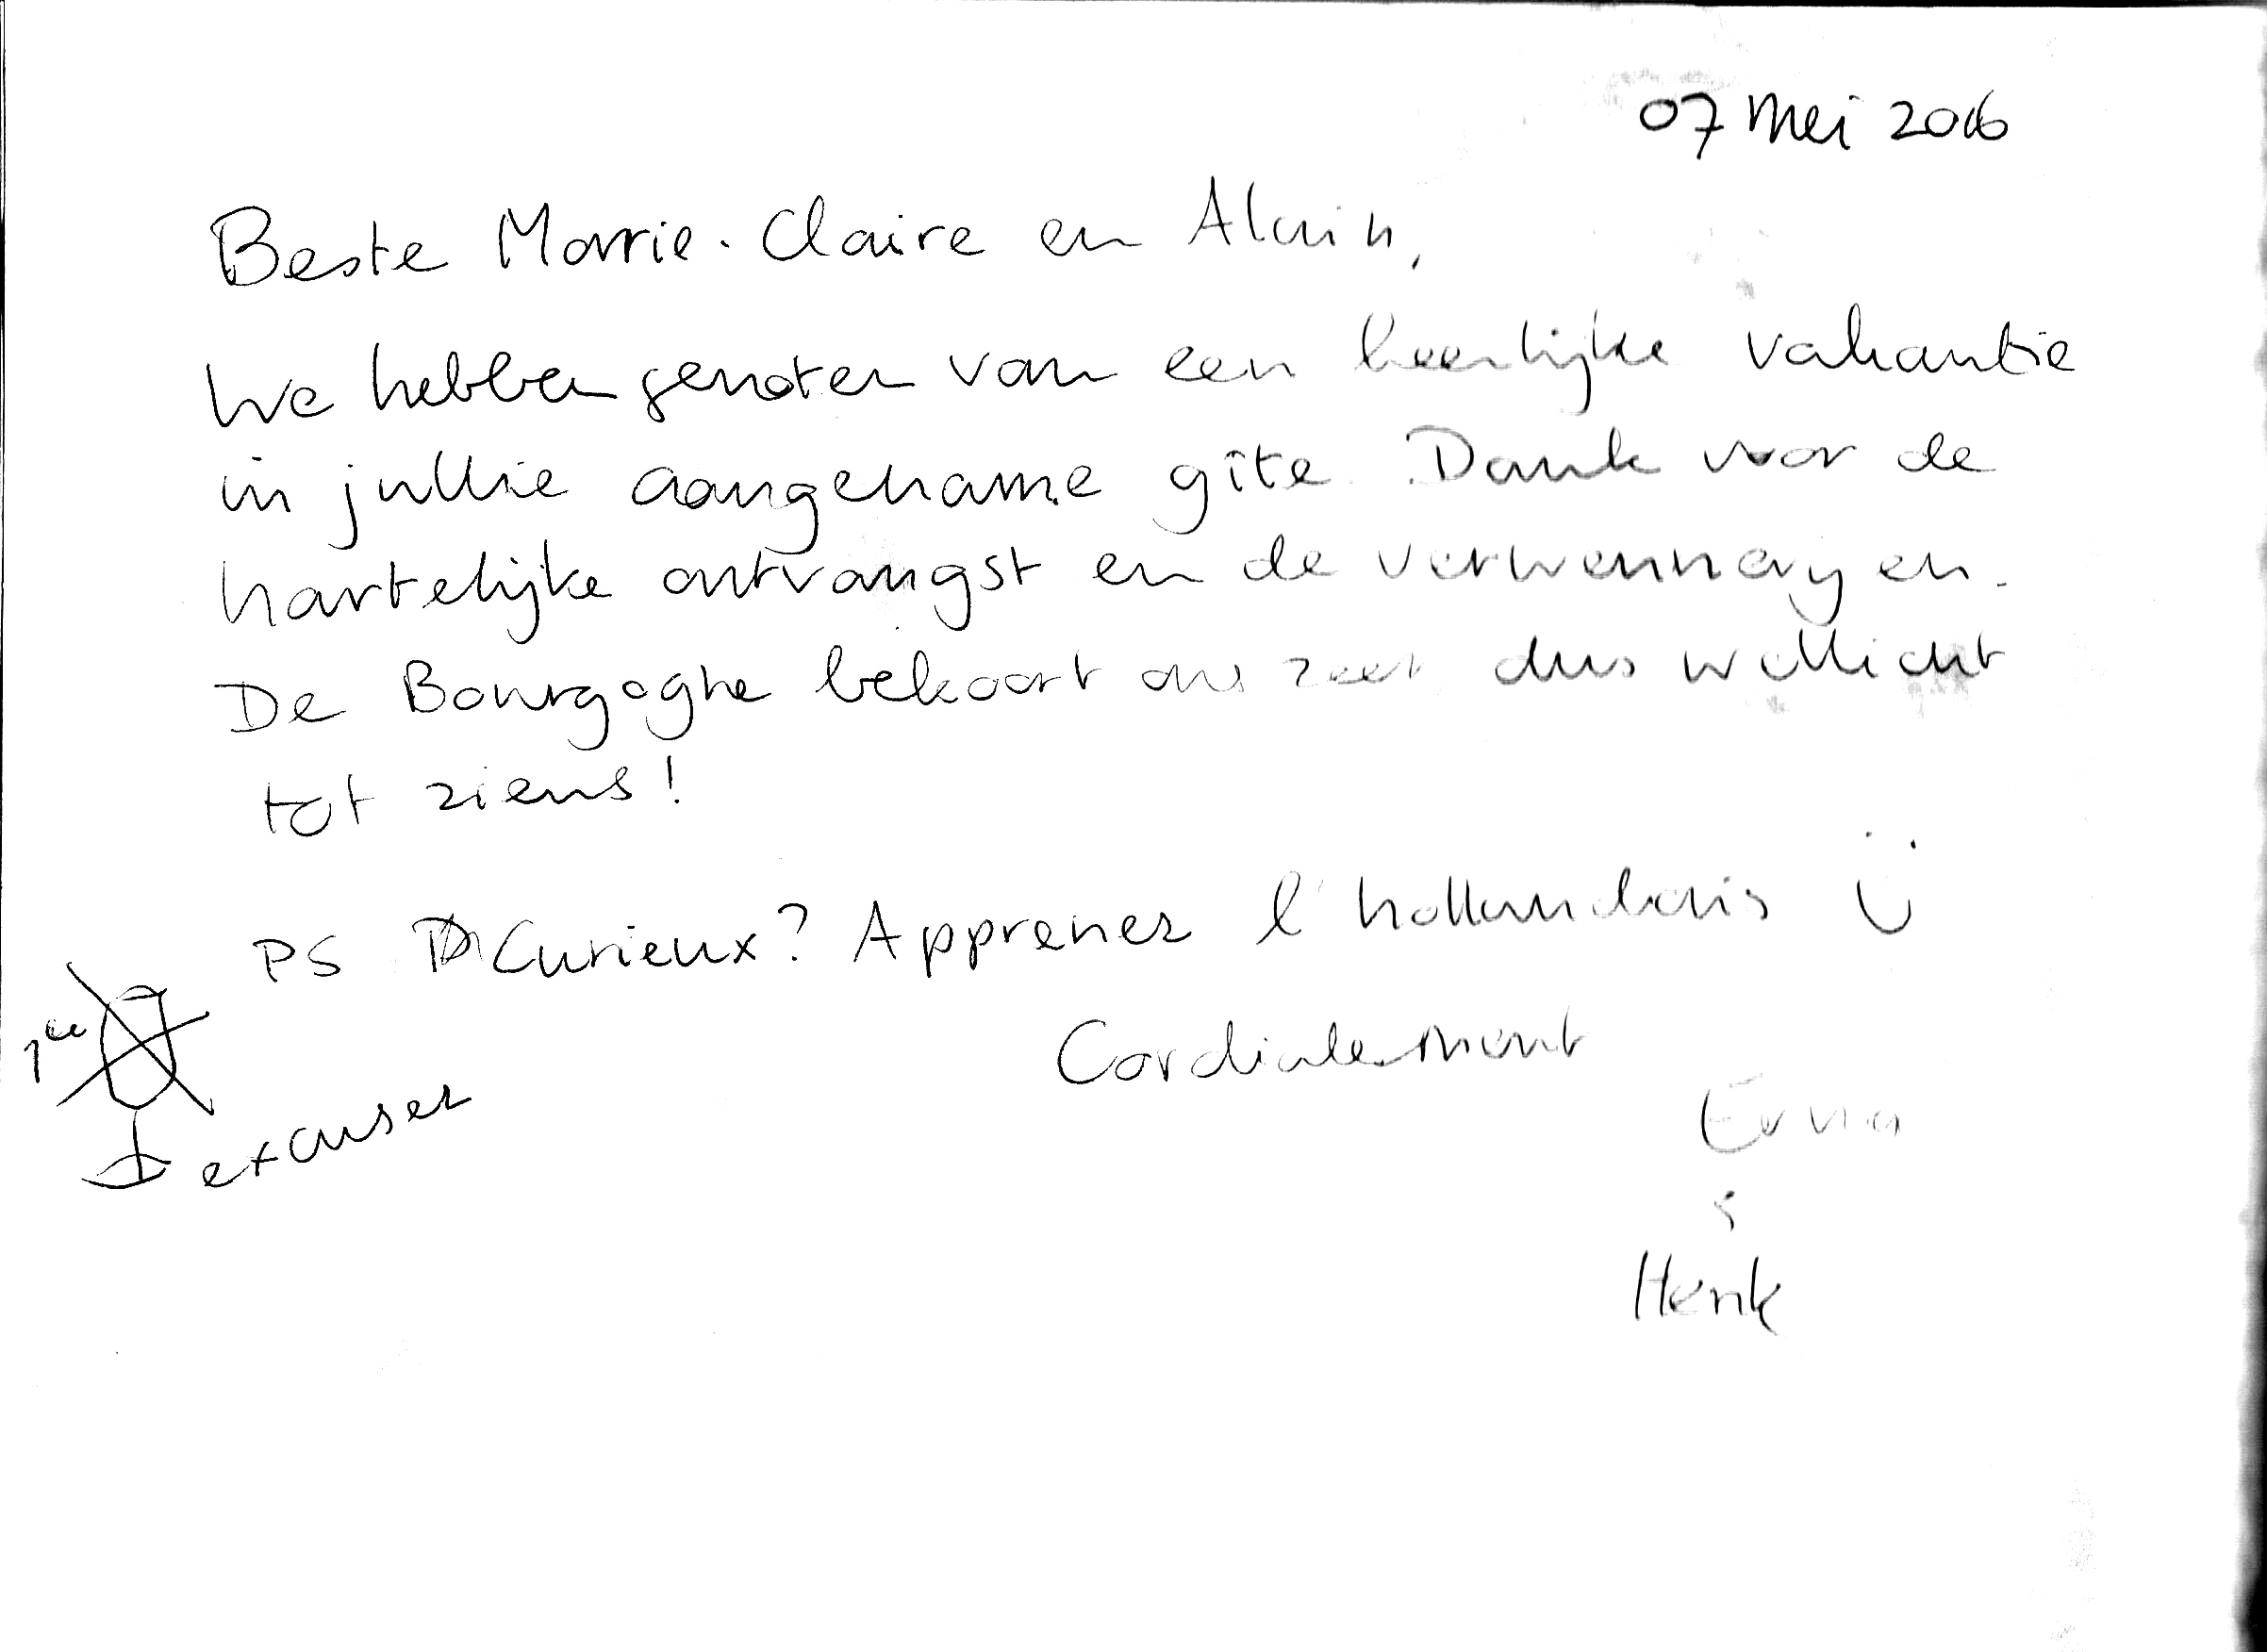 07 mei 2006
Beste Marrie-Claire en Alain,
We hebben genoten van een heerlijke vakantie
in jullie aangename gîte. Dank voor de
hartelijke ontvangst en de verwennerijen.
De Bourgogne bekoort ons zeer dus wellicht
tot ziens!
PS Curieux? Apprenez l'hollandais
Cordialement
excuses
Erna
Henk